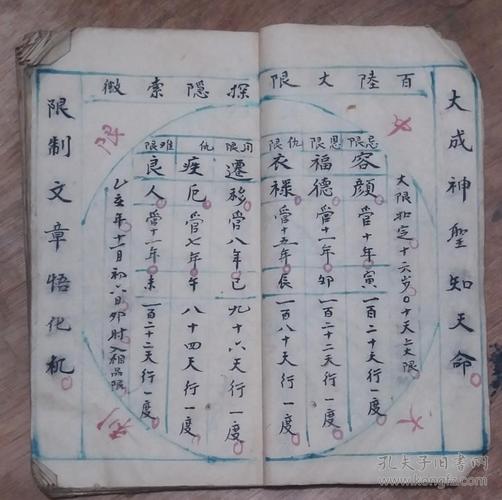 大成神聖知天命
百陸大限
探隱索微
大限扣定十六岁0十天上大限
忌限
容顔管十年寅一百二十天行一度
恩限
福德管十一年卯一百二十二天行一度
仇限
衣祿管十五年辰一百八十天行一度
用限
遷移管八年巳九十六天行一度
仇
疾厄管七年午八十四天行一度
难限
良人管十一年未一百二十二天行一度
乙亥年十二月初六日卯时入相品限
限制文章悟化机
孔夫子旧书网
www.kongfz.com